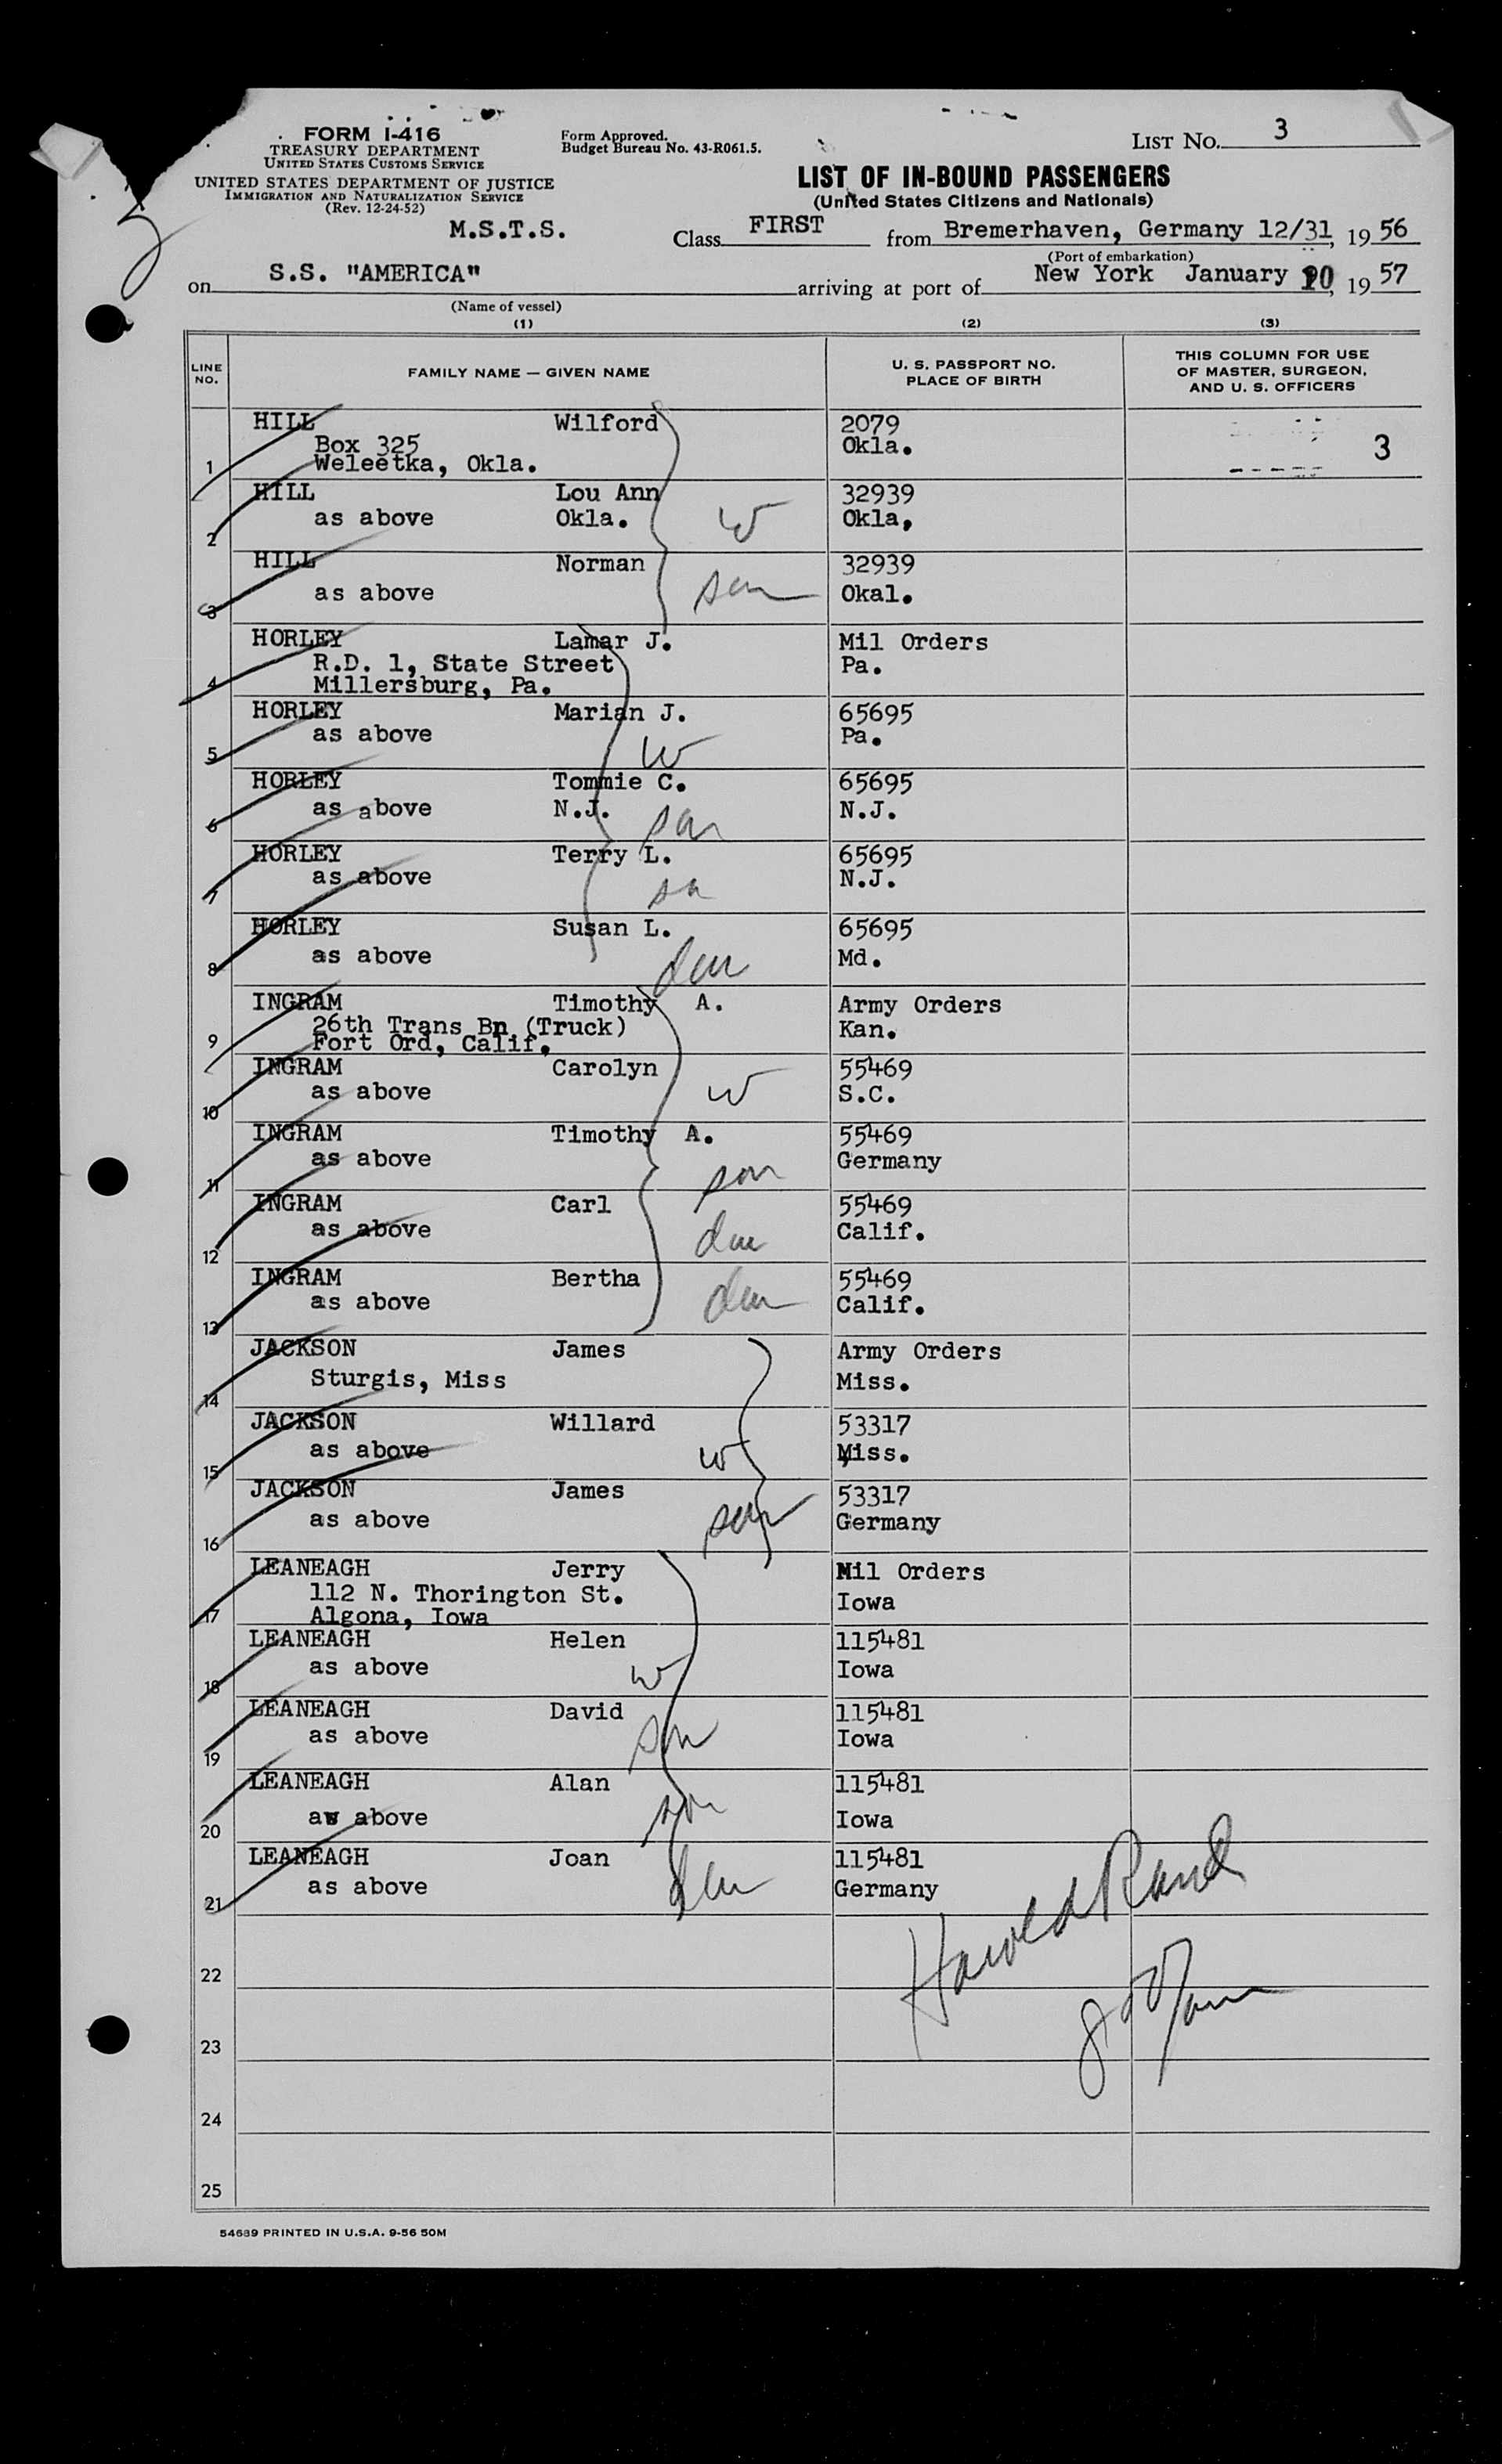 FORM I-416
TREASURY DEPARTMENT
UNITED STATES CUSTOMS SERVICE
UNITED STATES DEPARTMENT OF JUSTICE
IMMIGRATION AND NATURALIZATION SERVICE
(Rev. 12-24-52)
Form Approved.
Budget Bureau No. 43-R061.5.
LIST No. 3
LIST OF IN-BOUND PASSENGERS
(United States Citizens and Nationals)
M.S.T.S.
Class FIRST from Bremerhaven, Germany 12/31, 1956
(Port of embarkation)
on S.S. "AMERICA" arriving at port of New York January 10, 1957
(Name of vessel)
(1) (2) (3)
LINE NO. FAMILY NAME — GIVEN NAME U. S. PASSPORT NO. PLACE OF BIRTH THIS COLUMN FOR USE OF MASTER, SURGEON, AND U. S. OFFICERS
HILL Wilford 2079
Box 325 Okla. 3
1 Weleetka, Okla.
HILL Lou Ann 32939
2 as above Okla. W Okla,
HILL Norman 32939
3 as above son Okal.
HORLEY Lamar J. Mil Orders
R.D. 1, State Street Pa.
4 Millersburg, Pa.
HORLEY Marian J. 65695
5 as above W Pa.
HORLEY Tommie C. 65695
6 as above N.J. son N.J.
HORLEY Terry L. 65695
7 as above son N.J.
HORLEY Susan L. 65695
8 as above dau Md.
INGRAM Timothy A. Army Orders
26th Trans Bn (Truck) Kan.
9 Fort Ord, Calif.
INGRAM Carolyn 55469
10 as above W S.C.
INGRAM Timothy A. 55469
11 as above son Germany
INGRAM Carl 55469
12 as above dau Calif.
INGRAM Bertha 55469
13 as above dau Calif.
JACKSON James Army Orders
14 Sturgis, Miss Miss.
JACKSON Willard 53317
15 as above W Miss.
JACKSON James 53317
16 as above son Germany
LEANEAGH Jerry Mil Orders
112 N. Thorington St. Iowa
17 Algona, Iowa
LEANEAGH Helen 115481
18 as above W Iowa
LEANEAGH David 115481
19 as above son Iowa
LEANEAGH Alan 115481
20 aw above son Iowa
LEANEAGH Joan 115481
21 as above dau Germany
Harold Rand
22
23
24
25
54689 PRINTED IN U.S.A. 9-56 50M